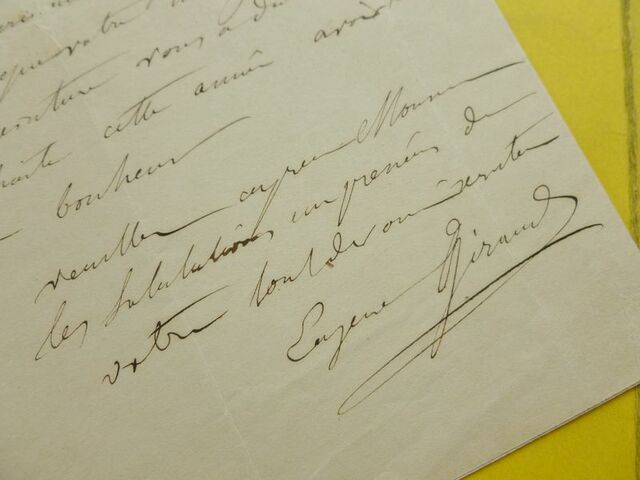 que votre
vous a du
cette année avoir
bonheur
veuillez agréer Monsieur
les salutations empressées de
votre tout dévoué serviteur
Eugene Giraud